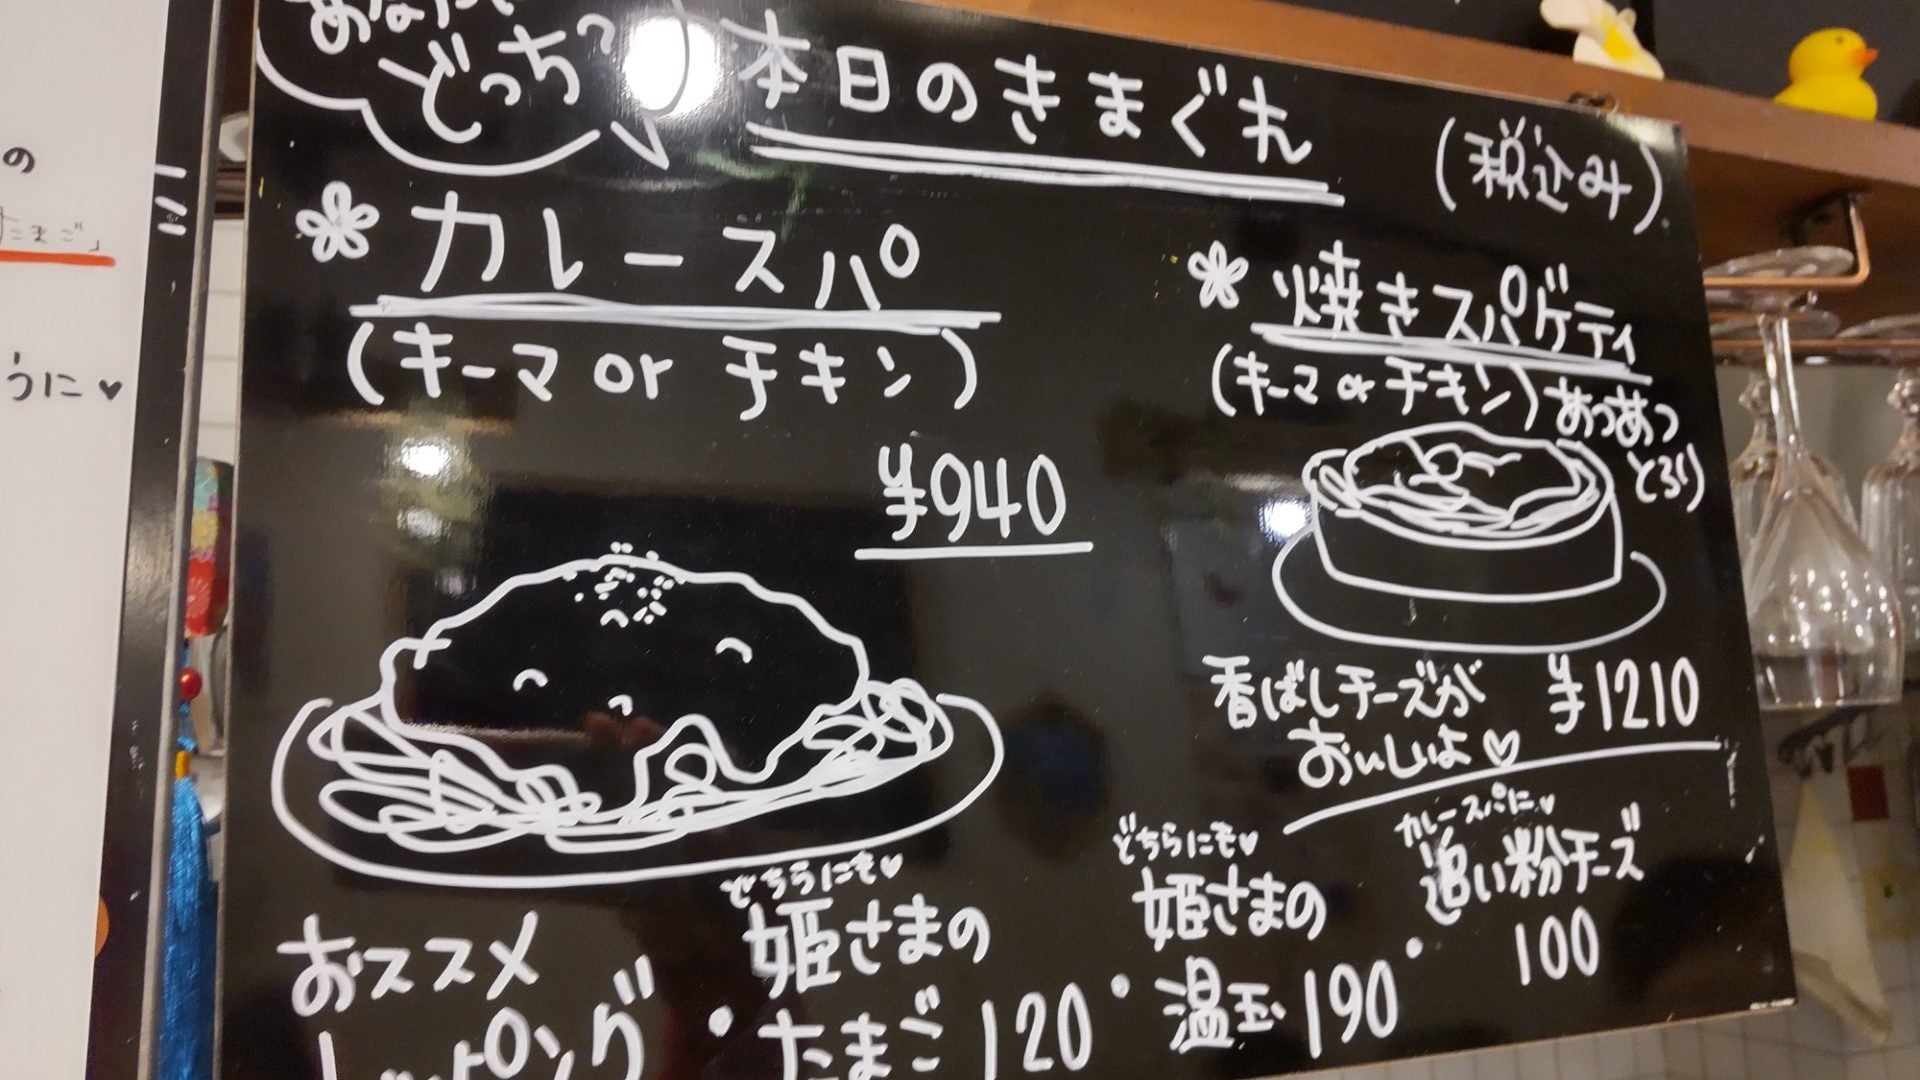 あなたは
どっち?
本日のきまぐれ
(税込み)
*カレースパ
(キーマ or チキン)
¥940
*焼きスパゲティ
(キーマ or チキン)
あつあつ
とろり
香ばしチーズが
おいしいよ♡
¥1210
おススメ
トッピング
どちらにも♥
・姫さまの
たまご 120
どちらにも♥
・姫さまの
温玉 190
カレースパに♥
・追い粉チーズ
100
の
たまご」
うに♥